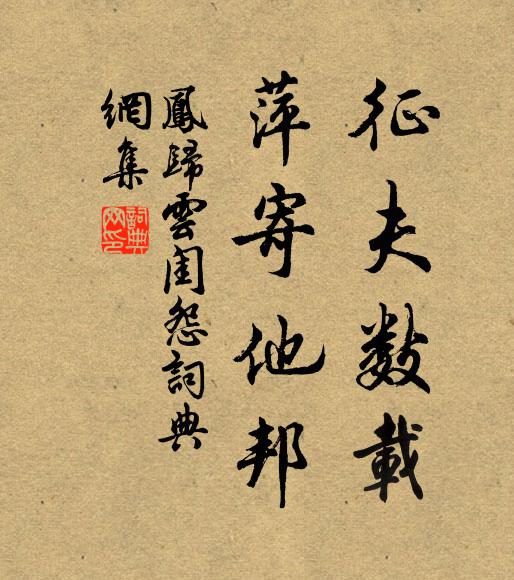 征夫数載
萍寄他邦
鳳歸雲閨怨詞典
網集
詞典網印